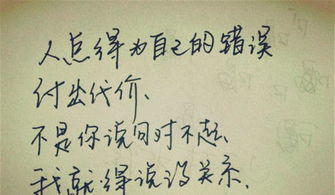 人总得为自己的错误
付出代价、
不是你说句对不起、
我就得说没关系.